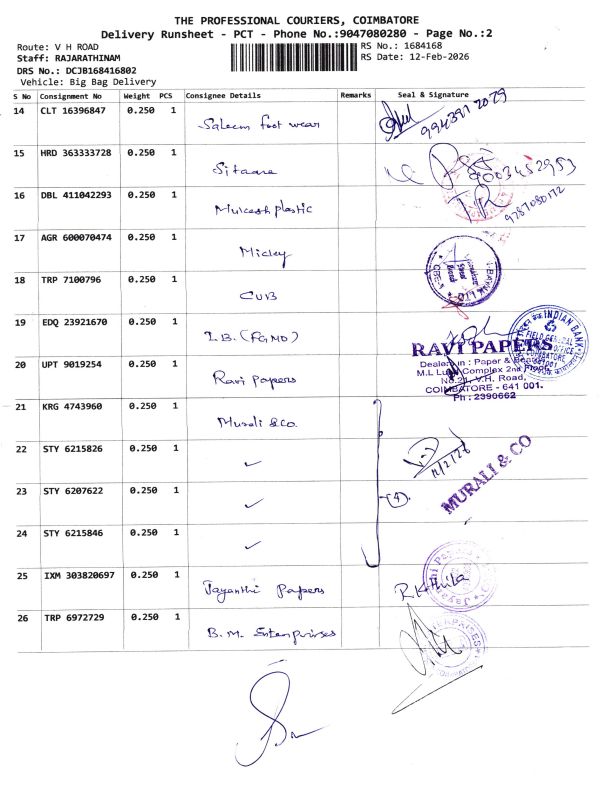 THE PROFESSIONAL COURIERS, COIMBATORE
Delivery Runsheet - PCT - Phone No.:9047080280 - Page No.:2
Route: V H ROAD
Staff: RAJARATHINAM
DRS No.: DCJB168416802
Vehicle: Big Bag Delivery
RS No.: 1684168
RS Date: 12-Feb-2026
S No Consignment No Weight PCS Consignee Details Remarks Seal & Signature
14 CLT 16396847 0.250 1 Saleem foot wear
15 HRD 363333728 0.250 1 Sitaara
16 DBL 411042293 0.250 1 Mukesh plastic 9787080172
17 AGR 600070474 0.250 1 Mickey
18 TRP 7100796 0.250 1 CUB
19 EDQ 23921670 0.250 1 I.B. (FGMO)
INDIAN BANK
20 UPT 9019254 0.250 1 Ravi papers
RAVI PAPERS
Dealers in : Paper &
M.L Complex 2nd
No.21, V.H. Road,
COIMBATORE - 641 001.
Ph : 2390662
21 KRG 4743960 0.250 1 Murali & Co.
22 STY 6215826 0.250 1 ✓ 12/2/26
23 STY 6207622 0.250 1 ✓ (4)
MURALI & CO
24 STY 6215846 0.250 1 ✓
25 IXM 303820697 0.250 1 Jayanthi Papers
26 TRP 6972729 0.250 1 B.M. Enterprises